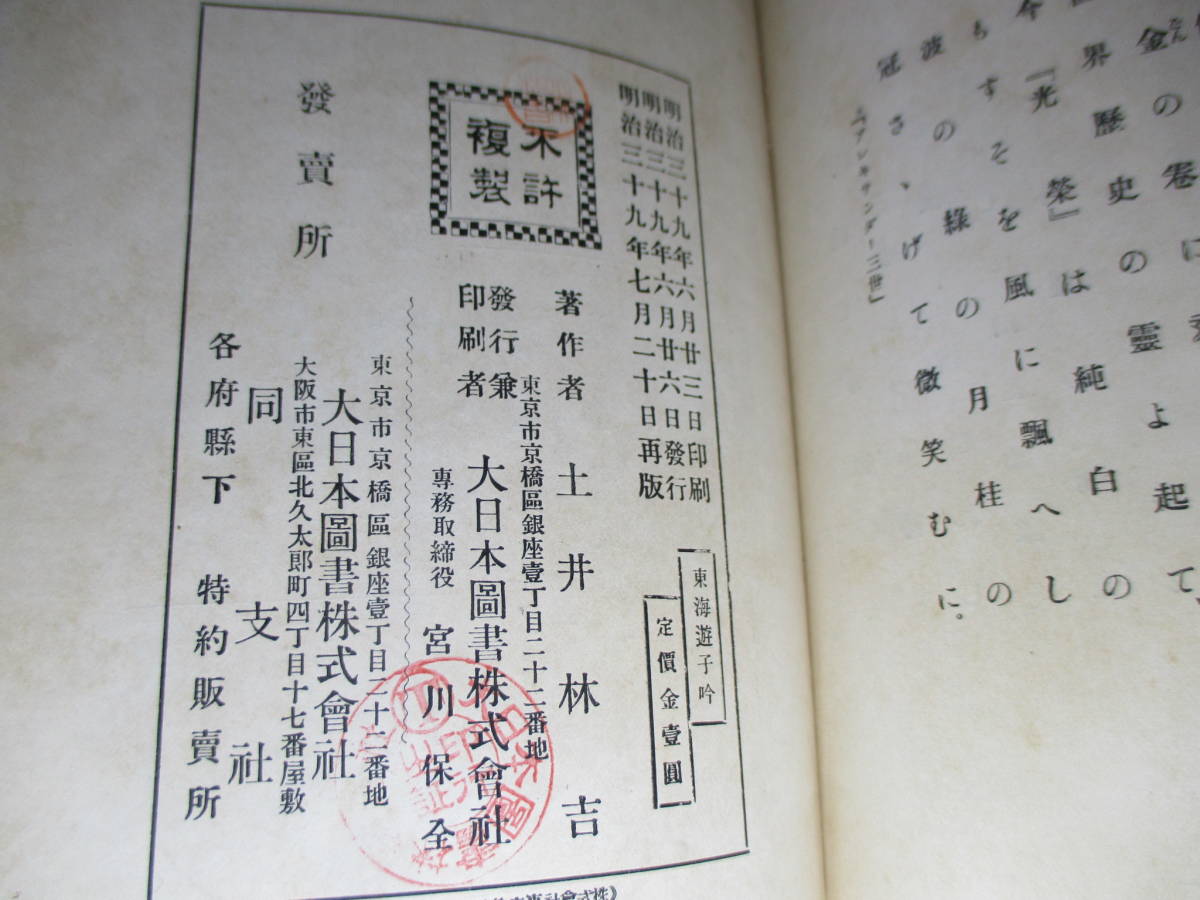 金の卷
界歷史の靈よ起て、
今『光榮』は純白の
もすそを風に飄へし
波の綠の月桂の
冠さゝげて微笑むに。
『アレキサンダー三世』
東海遊子吟
定價金壹圓
明治三十九年六月廿三日印刷
明治三十九年六月廿六日發行
明治三十九年七月二十日再版
不許
複製
著作者 土井林吉
東京市京橋區銀座壹丁目二十二番地
發行兼
印刷者
大日本圖書株式會社
專務取締役 宮川保全
東京市京橋區銀座壹丁目二十二番地
大日本圖書株式會社
大阪市東區北久太郎町四丁目十七番屋敷
同支社
發賣所
各府縣下 特約販賣所